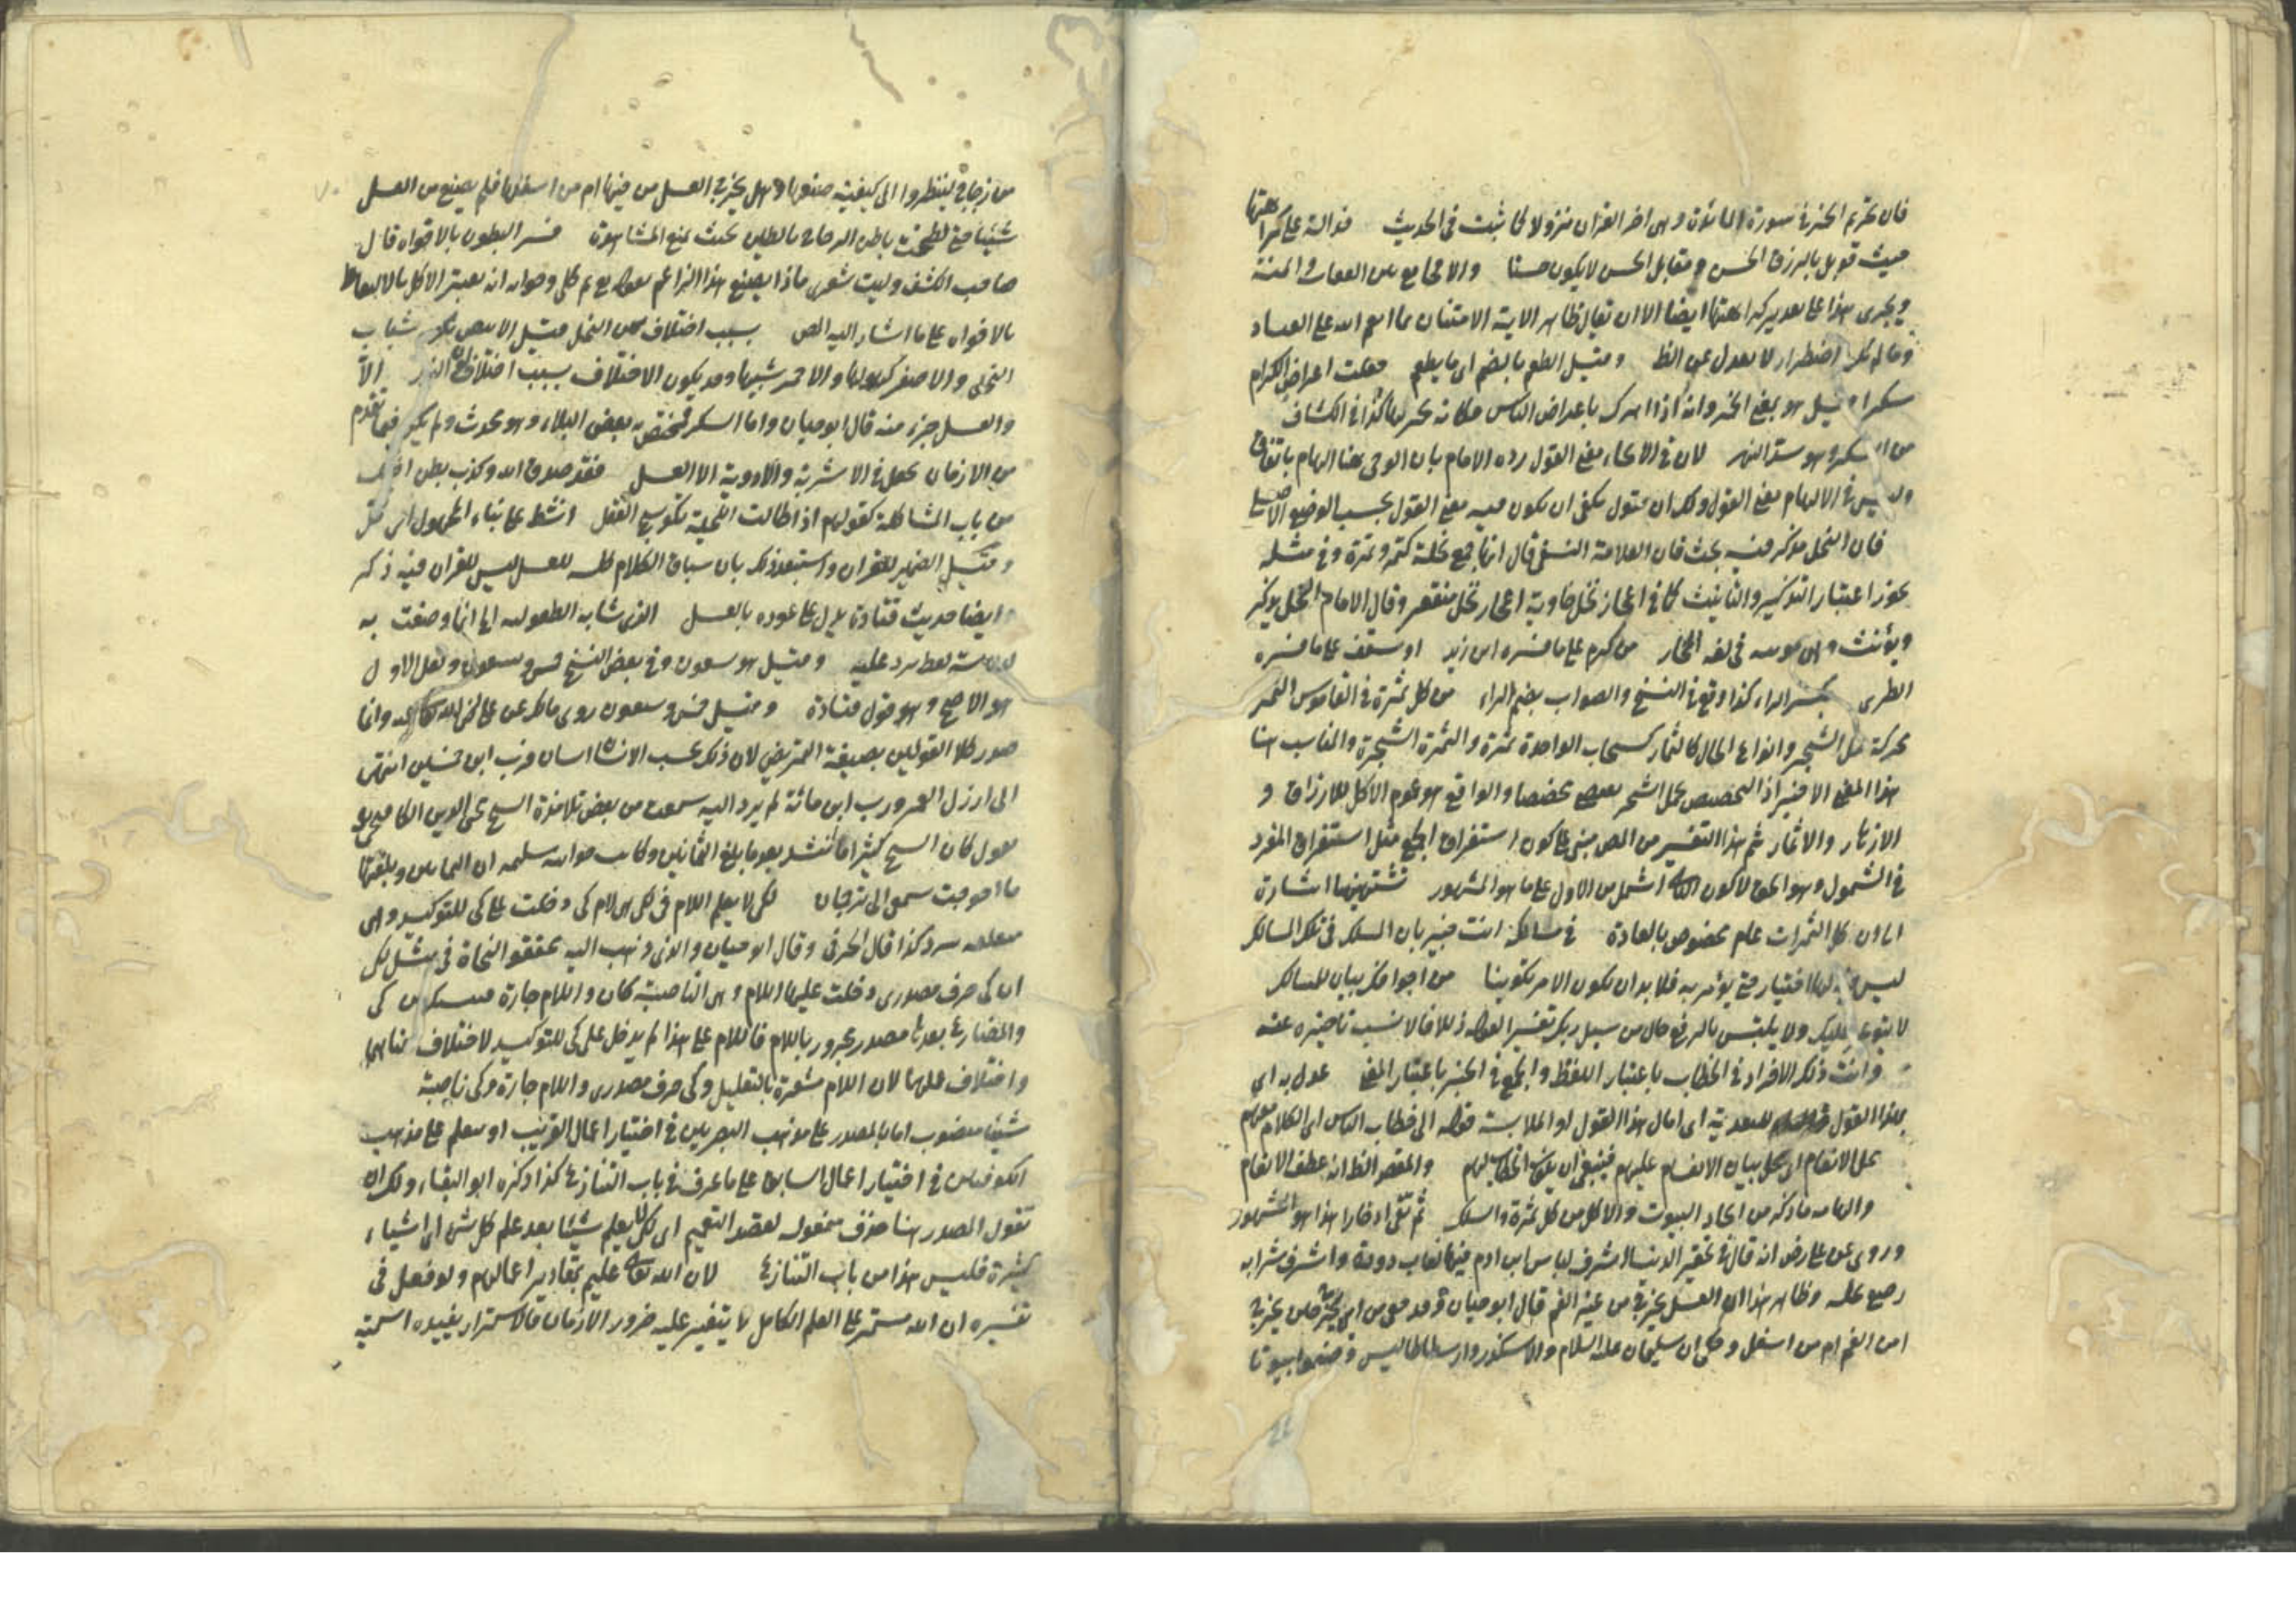 فان تحريم الخمر في سورة المائدة وهي اخر القران نزولا كما ثبت في الحديث فدالة على كراهتها
حيث قوبل بالرزق الحسن ومقابل الحسن لا يكون حسنا والا فجامع بين العتاب والمنة
ويجري هذا على تقدير كراهتها ايضا الا ان يقال ظاهر الاية الامتنان بما انعم الله على العباد
اضطرار لا يعدل عن الظ وقيل الطعم بالضم اي ما يطعم جعلت اعراض الكرام
سكرا قيل هو بمعنى الخمر وانه اذا ابترك باعراض الناس فكانه تخمر بها كذا في الكشاف
من السكر وهو سد النهر لان في الايحاء معنى القول رده الامام بان الوحي هنا الهام باتفاق
وليس في الالهام معنى القول ولك ان تقول يكفي ان يكون فيه معنى القول بحسب الوضع الاصلي
فان النحل مذكر فيه بحث فان العلامة النسفي قال انها جمع نحلة كتمر وتمرة وفي مثله
يجوز اعتبار التذكير والتانيث كما في اعجاز نخل خاوية اعجاز نخل منقعر وقال الامام النحل يذكر
ويؤنث وهي مؤنثة في لغة الحجاز من كرم على ما فسره ابن زيد او سقف على ما فسره
الطبري بكسر الراء كذا وقع في النسخ والصواب بضم الراء من كل ثمرة في القاموس الثمر
محركة حمل الشجر وانواع المال كالثمار كسحاب الواحدة ثمرة والثمرة الشجرة والمناسب هنا
هذا المعنى الاخير اذ التخصيص بحمل الشجر تخصيصا والواقع هو عموم الاكل للاوراق و
الازهار والاثمار ثم هذا التفسير من المص مبني على كون استغراق الجمع مثل استغراق المفرد
في الشمول وهو الحق لا كون اشمل من الاول على ما هو المشهور تشتهينها اشارة
الى ان كل الثمرات عام مخصوص بالعادة في مسالكه انت خبير بان السلك في تلك المسالك
ليس لها اختيار حتى يؤمر به فلا بد ان يكون الامر تكوينا من اجوافك بيان للمسالك
لا يتوعر عليك ولا يلتبس بالرفع حال من سبل ربك تفسير لقوله ذللا فالانسب تاخيره عنه
وانت ذلك الافراد في الخطاب باعتبار اللفظ والجمع في الخبر باعتبار المعنى عدل به اي
بهذا القول للتعدية اي امال هذا القول او الملابسة قوله الى خطاب الناس اي الكلام معهم
محل الانعام اي محل بيان الانعام عليهم فينبغي ان يكون الخطاب لهم والمقصود الظ انه عطف الانعام
والهامه ما ذكره من اتخاذ البيوت والاكل من كل ثمرة والسلك ثم تقئ ادخارا هذا هو المشهور
وروي عن علي رض انه قال في تحقير الدنيا اشرف لباس ابن ادم فيها لعاب دودة واشرف شرابه
رجيع نحلة وظاهر هذا ان العسل يخرج من غير الفم قال ابو حيان وقد خفي من اي المخرجين يخرج
امن الفم ام من اسفل وحكي ان سليمان عليه السلام والاسكندر وارسطاطاليس وضعوا بيوتا
من زجاج لينظروا الى كيفية صنعها وهل يخرج العسل من فيها ام من اسفلها فلم يصنع من العسل
شيئا حتى لطخت باطن الزجاج بالطين بحيث يمنع المشاهدة فسر البطون بالافواه قال
صاحب الكشف وليت شعري ماذا يصنع هذا الزاعم بقوله تع ثم كلي وجوابه انه يعتبر الاكل بالالتقاط
بالافواه على ما اشار اليه المص بسبب اختلاف سن النحل فقيل الابيض شباب
النحل والاصفر كهولها والاحمر شيبها وقد يكون الاختلاف بسبب اختلاف الا
والعسل جزء منه قال ابو حيان واما السكر فمختص به بعض البلاد وهو محدث ولم يكن فيما تقدم
من الازمان يجعل في الاشربة والادوية الا العسل فقد صدق الله وكذب بطن اخيك
من باب المشاكلة كقولهم اذا طالت اللحية تكوسج العقل انشط على بناء المجهول اي حل
وقيل الضمير للقران واستبعد ذلك بان سياق الكلام كله للعسل ليس للقران فيه ذكر
وايضا حديث قتادة يدل على عوده بالعسل الذي شابه الطفولية انما وصفت به
وقيل هو تسعون وفي بعض النسخ خمس وسبعون ونقل الاول
هو الاصح وهو قول قتادة وقيل خمس وسبعون روي ذلك عن علي وانما
صدر كلا القولين بصيغة التمريض لان ذلك بحسب الانسان فرب ابن خمسين انتهى
الى ارذل العمر ورب ابن مائة لم يرد اليه سمعت من بعض تلامذة الشيخ محي الدين الكافيجي
يقول كان الشيخ كثيرا ما ينشد بعد ما بلغ الثمانين وكانت حواسه سليمة ان الثمانين وبلغتها
ما احوجت سمعي الى ترجمان لكي لا يعلم اللام في لكي لام كي دخلت على كي للتوكيد وهي
متعلقة بيرد كذا قال الحوفي وقال ابو حيان والذي ذهب اليه محققو النحاة في مثل لكي
ان كي حرف مصدري دخلت عليها اللام وهي الناصبة كان واللام جارة فينسبك من كي
والمضارع بعدها مصدر مجرور باللام فاللام على هذا لم يدخل على كي للتوكيد لاختلاف معناهما
واختلاف عملهما لان اللام مشعرة بالتعليل وكي حرف مصدري واللام جارة وكي ناصبة
شيئا منصوب اما بالمصدر على مذهب البصريين في اختيار اعمال القريب او بيعلم على مذهب
الكوفيين في اختيار اعمال السابق على ما عرف في باب التنازع كذا ذكره ابو البقاء ولك ان
تقول المصدر هنا حذف مفعوله لقصد التعميم اي لكي لا يعلم شيئا بعد علم كل شيء اي اشياء
كثيرة فليس هذا من باب التنازع لان الله تعالى عليم بمقادير اعمالهم ولو فصل في
تفسيره ان الله مستمر على العلم الكامل لا يتغير عليه مرور الازمان فالاستمرار يفيده اسمية